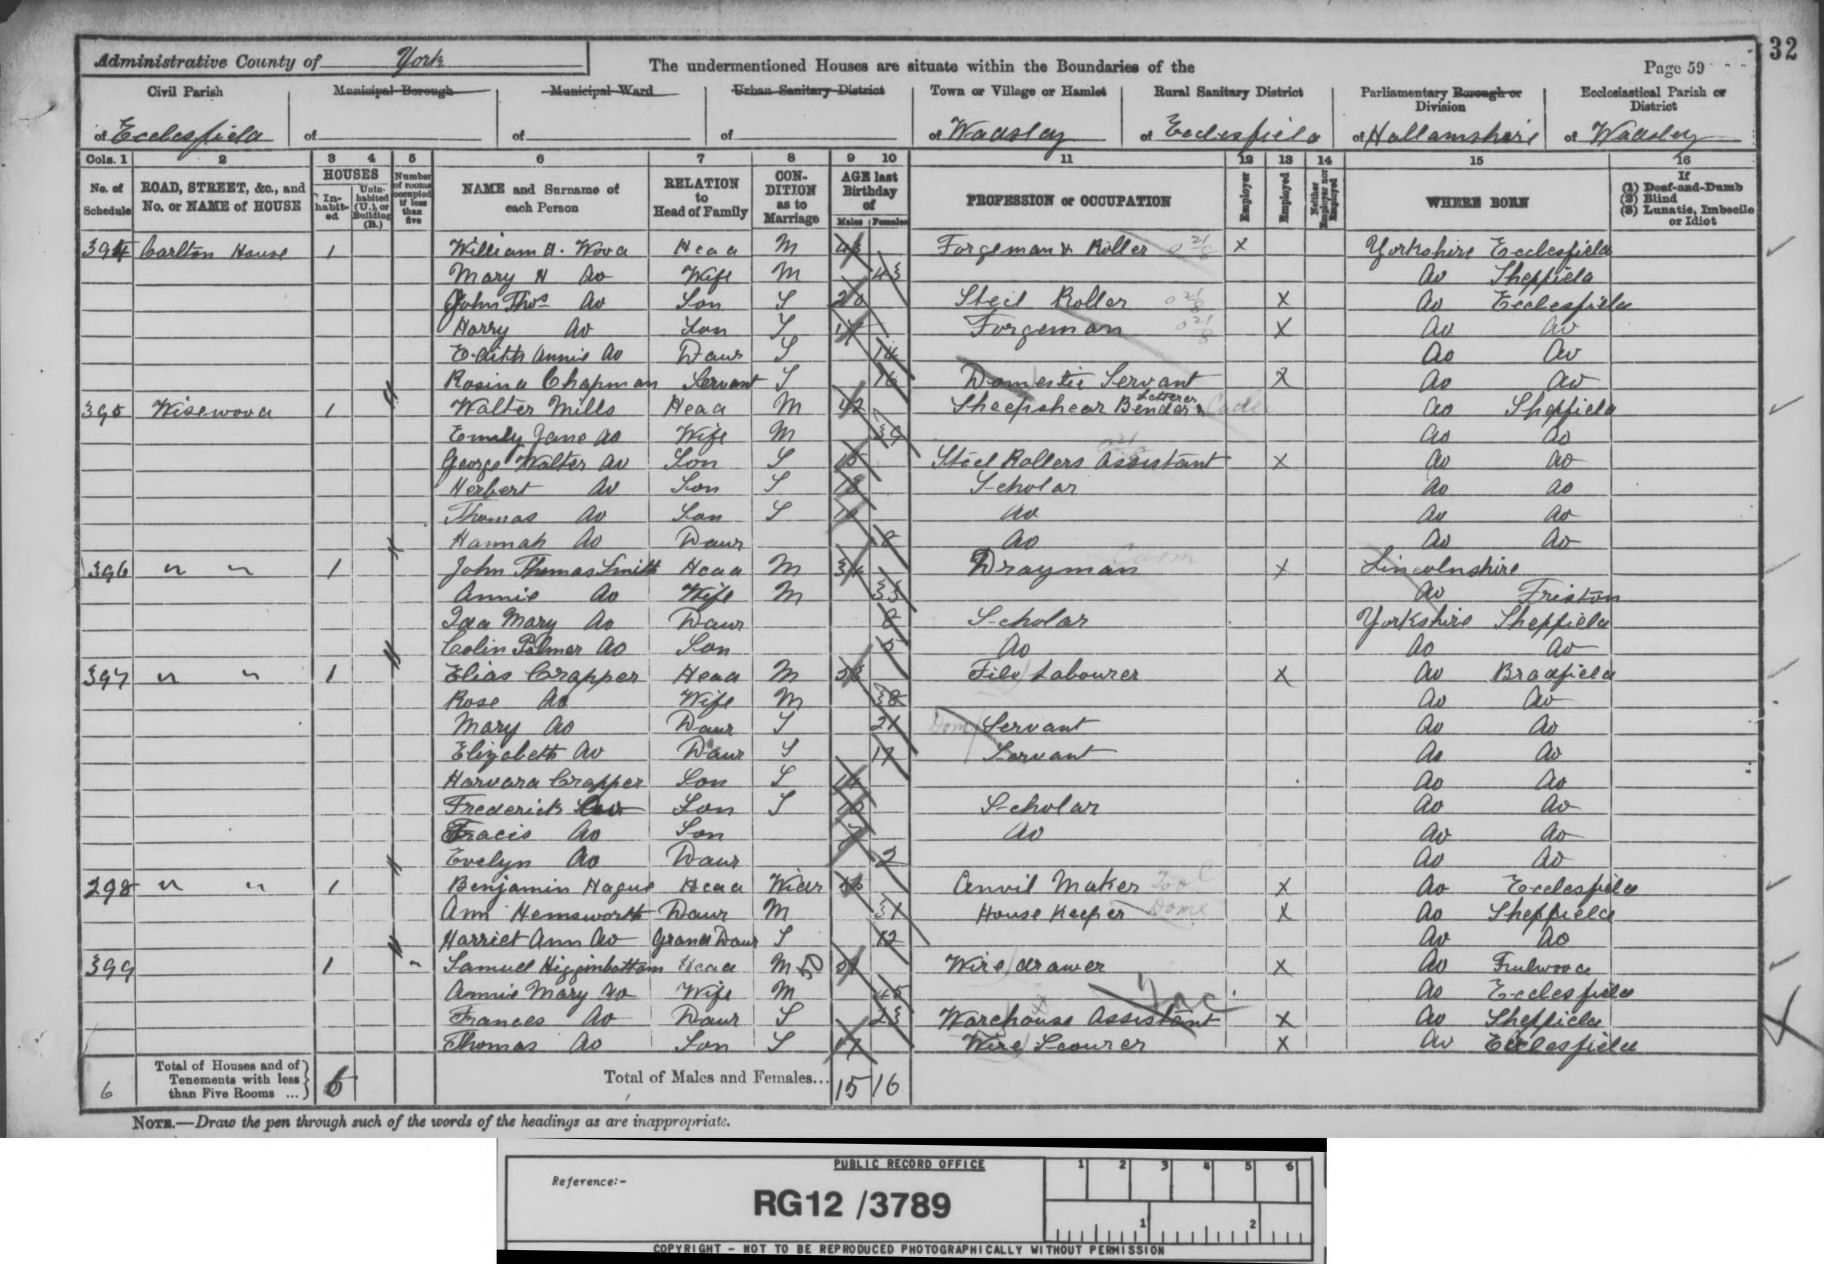 32
Administrative County of York
The undermentioned Houses are situate within the Boundaries of the
Page 59
Civil Parish Municipal Borough Municipal Ward Urban Sanitary District Town or Village or Hamlet Rural Sanitary District Parliamentary Borough or Division Ecclesiastical Parish or District
of Ecclesfield of of of of Wadsley of Ecclesfield of Hallamshire of Wadsley
Cols. 1 2 3 4 5 6 7 8 9 10 11 12 13 14 15 16
No. of Schedule ROAD, STREET, &c., and No. or NAME of HOUSE HOUSES Inhabited Uninhabited (U.), or Building (B.) Number of rooms occupied if less than five NAME and Surname of each Person RELATION to Head of Family CONDITION as to Marriage AGE last Birthday of Males Females PROFESSION or OCCUPATION Employer Employed Neither Employer nor Employed WHERE BORN If (1) Deaf-and-Dumb (2) Blind (3) Lunatic, Imbecile or Idiot
394 Carlton House 1 William H. Wood Head M Forgeman & Roller X Yorkshire Ecclesfield
Mary H do Wife M 43 do Sheffield
John Thos do Son S 20 Steel Roller X do Ecclesfield
Harry do Son S Forgeman X do do
Edith Annie do Daur S 14 do do
Rosina Chapman Servant S 16 Domestic Servant X do do
395 Wisewood 1 Walter Mills Head M 42 Sheepshear Bender & do Sheffield
Emily Jane do Wife M 39 do do
George Walter do Son S 15 Steel Rollers Assistant X do do
Herbert do Son S Scholar do do
Thomas do Son S 10 do do do
Hannah do Daur 8 do do do
396 " " 1 John Thomas Smith Head M 34 Drayman X Lincolnshire
Annie do Wife M 35 do Friston
Ida Mary do Daur 8 Scholar Yorkshire Sheffield
Colin Palmer do Son 5 do do do
397 " " 1 Elias Crapper Head M File Labourer X do Bradfield
Rose do Wife M 38 do do
Mary do Daur S 21 Servant do do
Elizabeth do Daur S 17 Servant do do
Harvard Crapper Son S 14 do do
Frederick do Son S Scholar do do
Fracis do Son 7 do do do
Evelyn do Daur 2 do do
298 " " 1 Benjamin Hague Head Widr Anvil Maker Tool X do Ecclesfield
Ann Hemsworth Daur M 31 House Keeper Dome X do Sheffield
Harriet Ann do Grand Daur S 12 do do
399 1 - Samuel Higginbottam Head M 50 Wire drawer X do Fulwood
Annie Mary do Wife M 45 do Ecclesfield
Frances do Daur S 23 Warehouse Assistant X do Sheffield
Thomas do Son S 17 Wire Scourer X do Ecclesfield
6 Total of Houses and of Tenements with less than Five Rooms ... 6 Total of Males and Females... 15 16
NOTE.—Draw the pen through such of the words of the headings as are inappropriate.
PUBLIC RECORD OFFICE 1 2 3 4 5 6
Reference:-
RG12 /3789
1 2
COPYRIGHT - NOT TO BE REPRODUCED PHOTOGRAPHICALLY WITHOUT PERMISSION